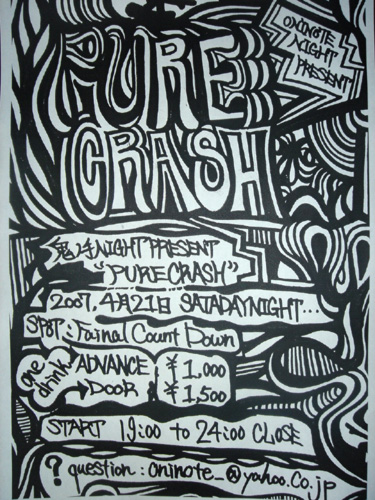 PURE
CRASH
ONINOTE
NIGHT
PRESENT
鬼ノ NIGHT PRESENT
"PURE CRASH"
2007, 4月21日 SATADAYNIGHT...
SPOT: Fainal Count Down
one drink
ADVANCE ¥1,000
DOOR ¥1,500
START 19:00 to 24:00 CLOSE
? question : oninote_@yahoo.co.jp